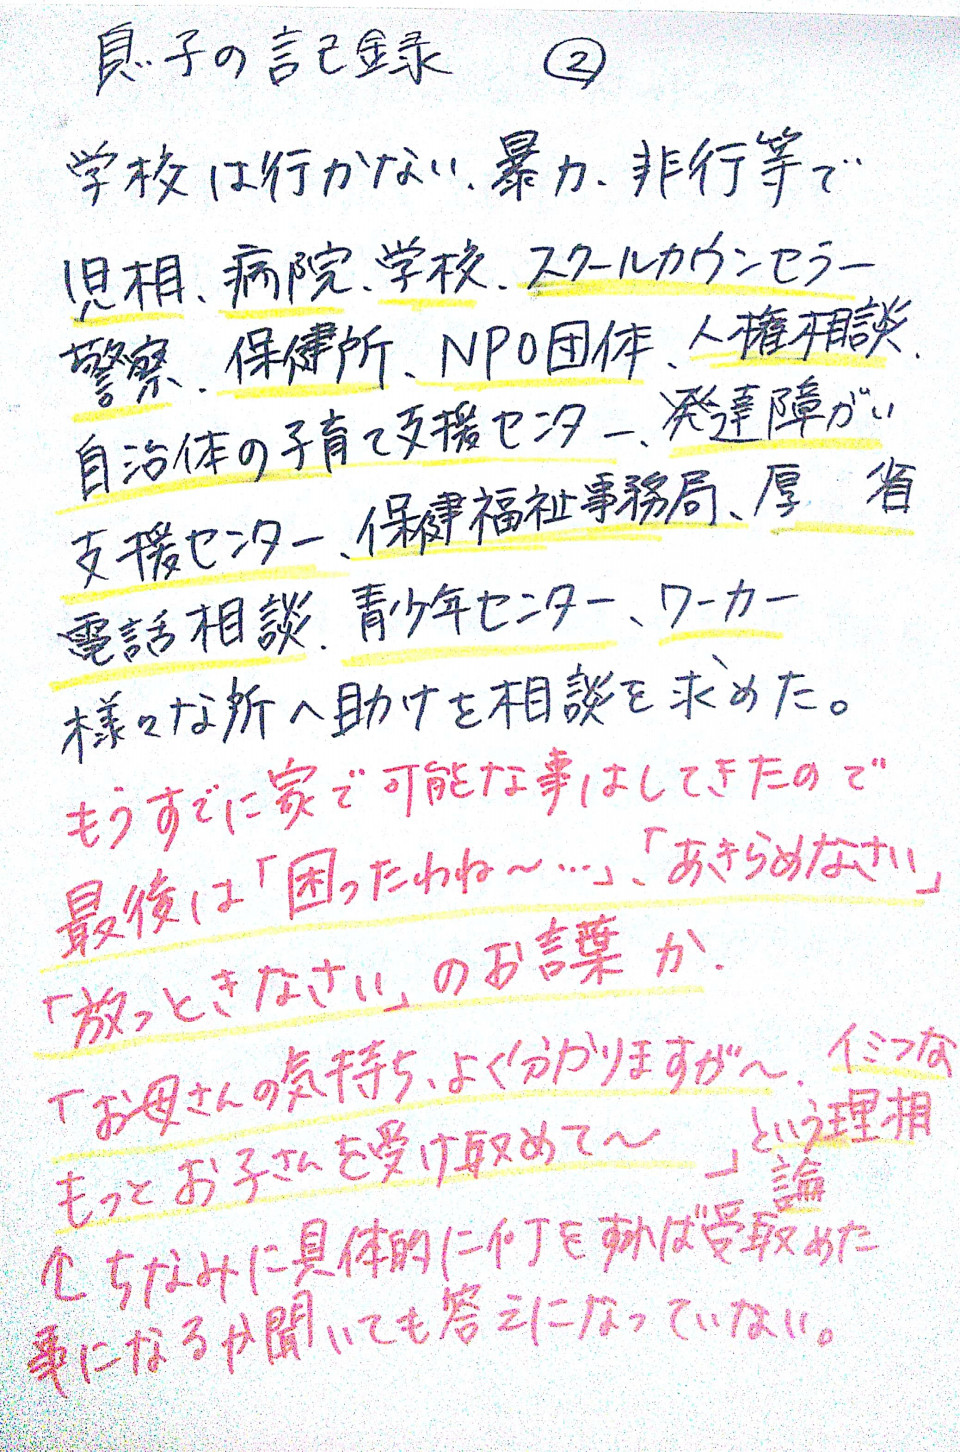 息子の記録 ②
学校は行かない、暴力、非行等で
児相、病院、学校、スクールカウンセラー
警察、保健所、NPO団体、人権相談、
自治体の子育て支援センター、発達障がい
支援センター、保健福祉事務局、厚 省
電話相談、青少年センター、ワーカー
様々な所へ助けを相談を求めた。
もうすでに家で可能な事はしてきたので
最後は「困ったわね〜…」、「あきらめなさい」
「放っときなさい」のお言葉か、
「お母さんの気持ち、よく分かりますが〜、
もっとお子さんを受け取めて〜 」
イミフな
という理相
論
↑ちなみに具体的に何をすれば受取めた
事になるか聞いても答えになっていない。